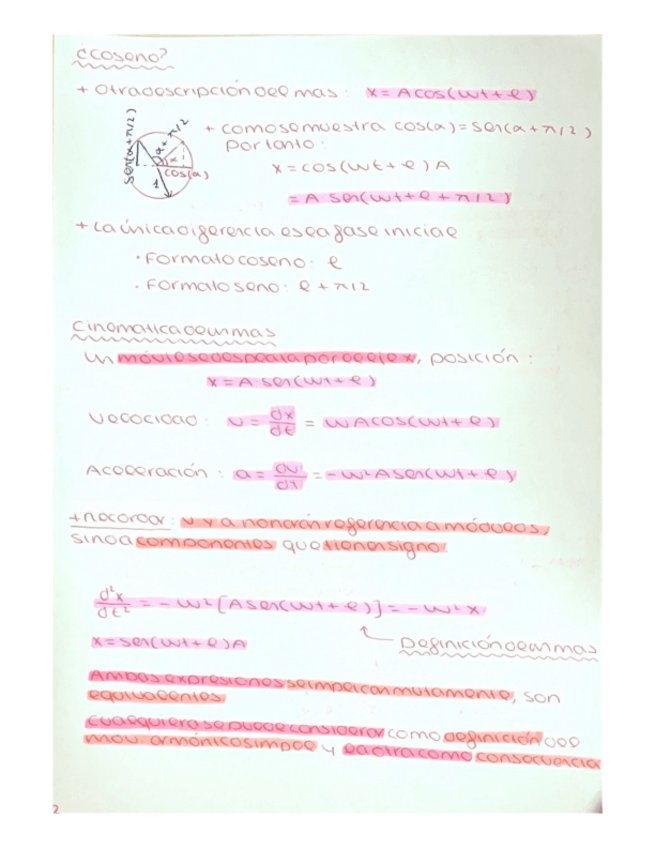 ¿Coseno?
+ Otra descripción del mas: x = A cos(wt + φ)
+ como se muestra cos(α) = sen(α + π/2)
por tanto:
sen(α+π/2)
α + π/2
α
cos(α)
1
x = cos(wt + φ) A
= A sen(wt + φ + π/2)
+ La única diferencia es la fase inicial
· Formato coseno: φ
· Formato seno: φ + π/2
Cinematica de un mas
Un móvil se desplaza por el eje x, posición:
x = A sen(wt + φ)
Velocidad: v = dx/dt = wA cos(wt + φ)
Aceleración: a = dv/dt = -w²A sen(wt + φ)
+ Recordar: v y a no harán referencia a módulos,
sino a componentes que tienen signo.
d²x/dt² = -w² [A sen(wt + φ)] = -w²x
x = sen(wt + φ)A
Definición de un mas
Ambas expresiones se implican mutuamente, son
equivalentes.
Cualquiera se puede considerar como definición del
mov. armónico simple y la otra como consecuencia
2